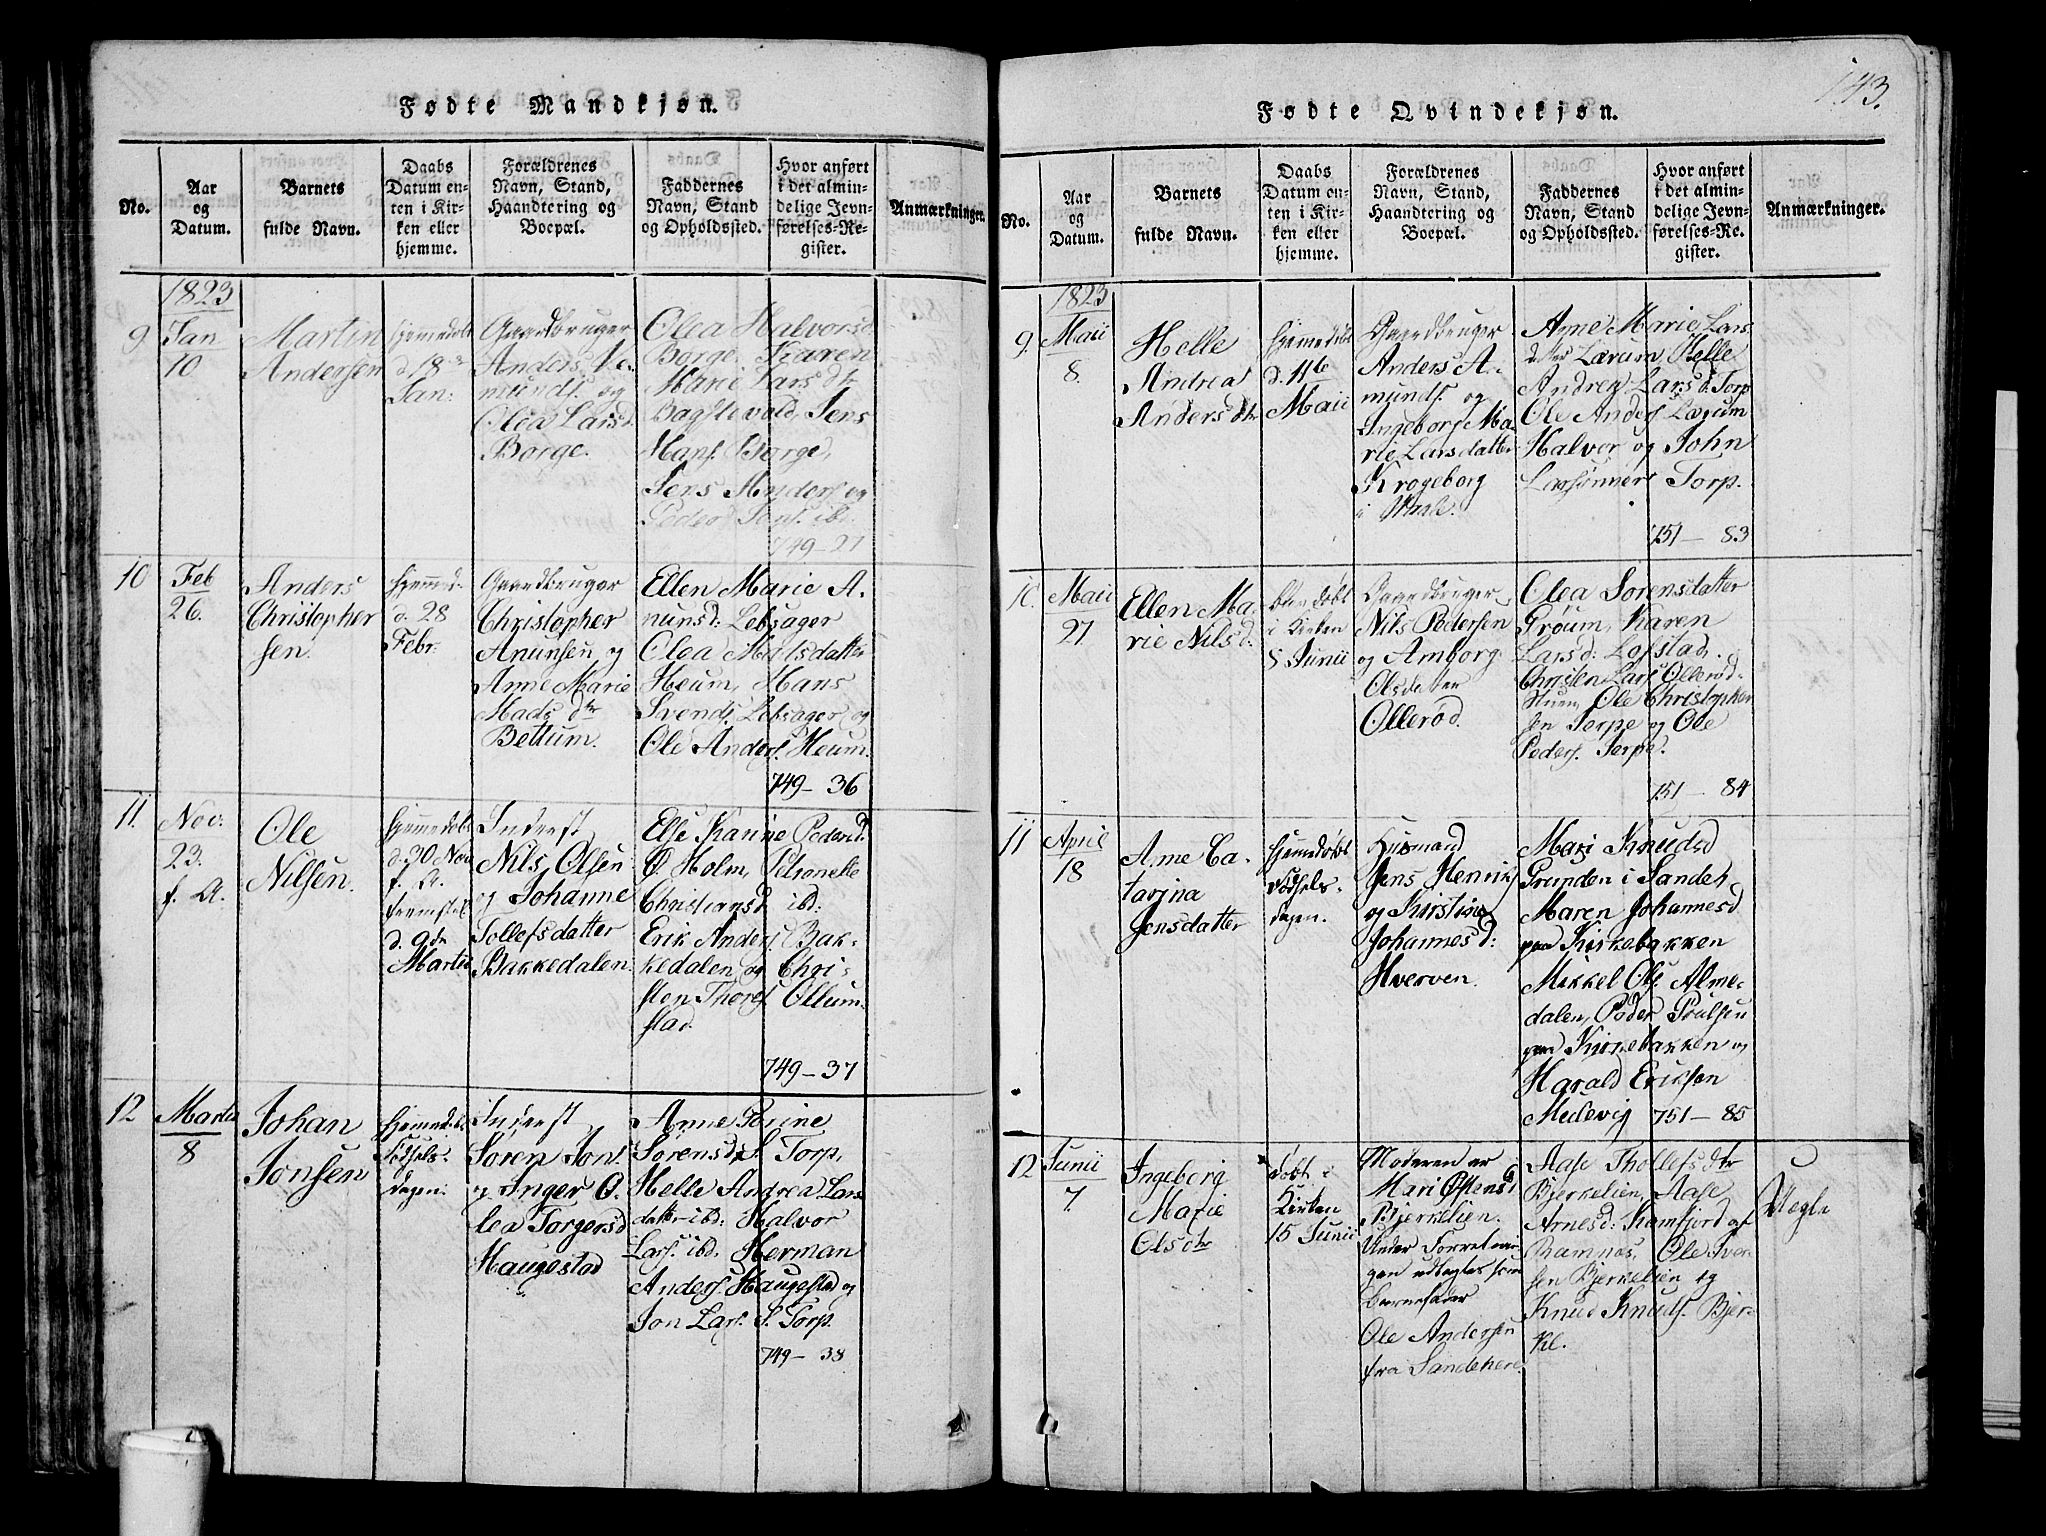 Fødte Mandkjøn.
No.
Aar og Datum.
Barnets fulde Navn.
Daabs Datum enten i Kirken eller hjemme.
Forældrenes Navn, Stand, Haandtering og Boepæl.
Faddernes Navn, Stand og Opholdssted.
Hvor anført i det almindelige Jevnførelses-Register.
Anmærkninger.
1823
9
Jan
10
Martin
Andersen
hjemedøbt
d. 18
Jan:
Gaardbruger
Anders A-
munds. og
Olea Larsd.
Borge.
Olea Halvorsd.
Borge, Karen
Marie Lars dtr
Bagstevold, Jens
Hans. Borge,
Jens Anders. og
Peder Jons. ibd.
749-27
10
Feb
26.
Anders
Christopher
sen.
hjemmed.
d. 28
Febr.
Gaardbruger
Christopher
Anunsen og
Anne Marie
Mads dtr
Bettum.
Ellen Marie A-
nunsd: Lebsager
Olea Matsdatter
Heum, Hans
Svends. Lebsager og
Ole Anders. Heum.
749-36
11.
Nov.
23.
f. A.
Ole
Nilsen.
hjemedøbt
d. 30 Nov
f. A.
fremstil
d. 9de
Martii
Inderst
Nils Olsen
og Johanne
Tollefsdatter
Bakkedalen.
Else Karine Pedersd.
Ø. Holm, Petronelle
Christiansd ibd:
Erik Anders. Bak-
kedalen og Chri-
sten Thores. Ollum-
stad.
749-37
12
Martii
8
Johan
Jonsen
hjemedøbt
Fødsels-
dagen.
Inderst
Søren Jons.
og Inger O-
lea Torgersd
Haugestad
Anne Torine
Sørensd, S. Torp,
Helle Andrea Lars
datter ibd: Halvor
Lars. ibd. Herman
Anders. Haugestad og
Jon Lars. S. Torp.
749-38
143.
Fødte Qvindekjøn.
No.
Aar og Datum.
Barnets fulde Navn.
Daabs Datum enten i Kirken eller hjemme.
Forældrenes Navn, Stand, Haandtering og Boepæl.
Faddernes Navn, Stand og Opholdssted.
Hvor anført i det almindelige Jevnførelses-Register.
Anmærkninger.
1823
9.
Maii
8.
Helle
Andrea
Anders dtr
hjemedøbt
d. 16
Maii
Gaardbruger
Anders A-
munds. og
Ingeborg Ma-
rie Larsdatter
Krogeborg
i Vaale.
Anne Marie Lars
dtter Lærum, Helle
Andrea Lars d. Torp
Ole Anders. Lærum
Halvor og John
Larsønner Torp.
751-83
10.
Maii
27
Ellen Ma-
rie Nilsd:
døbt
i Kirken
8 Junii
Gaardbruger
Nils Pedersen
og Amborg
Olsdatter
Ollerød.
Olea Sorensdatter
Grøum, Karen
Larsd: Løfstad.
Christen Lars. Ollerød
Stuen, Ole Christopher
sen Jerpe og Ole
Peders. Jerpe.
751-84
11
April
18
Anne Ca-
tarina
Jensdatter
hjemedøbt
Fødsels-
dagen.
Husmand
Jens Henrik
og Kirstine
Johannesd:
Hverven.
Mari Knudsd
Grunden i Sandeh.
Maren Johannesd
paa Kirkebakken
Mikkel Ols. Alme-
dalen, Peder Poulsen
paa Kirkebakken og
Harald Eriksen
Medevig
751-85
12
Junii
7.
Ingeborg
Marie
Olsdtr
døbt i
Kirken
15 Junii
Moderen er
Mari Østensd
Bjerkelien.
Under Forretnin-
gen udlagtes som
Barnefader
Ole Andersen
fra Sandehered.
Aase Thollefsdtr
Bjerkelien, Aase
Arnesd: Kamfjord af
Ramnæs, Ole Iver-
sen Bjerkelien og
Knud Knuds. Bjer-
kel.
Uægte